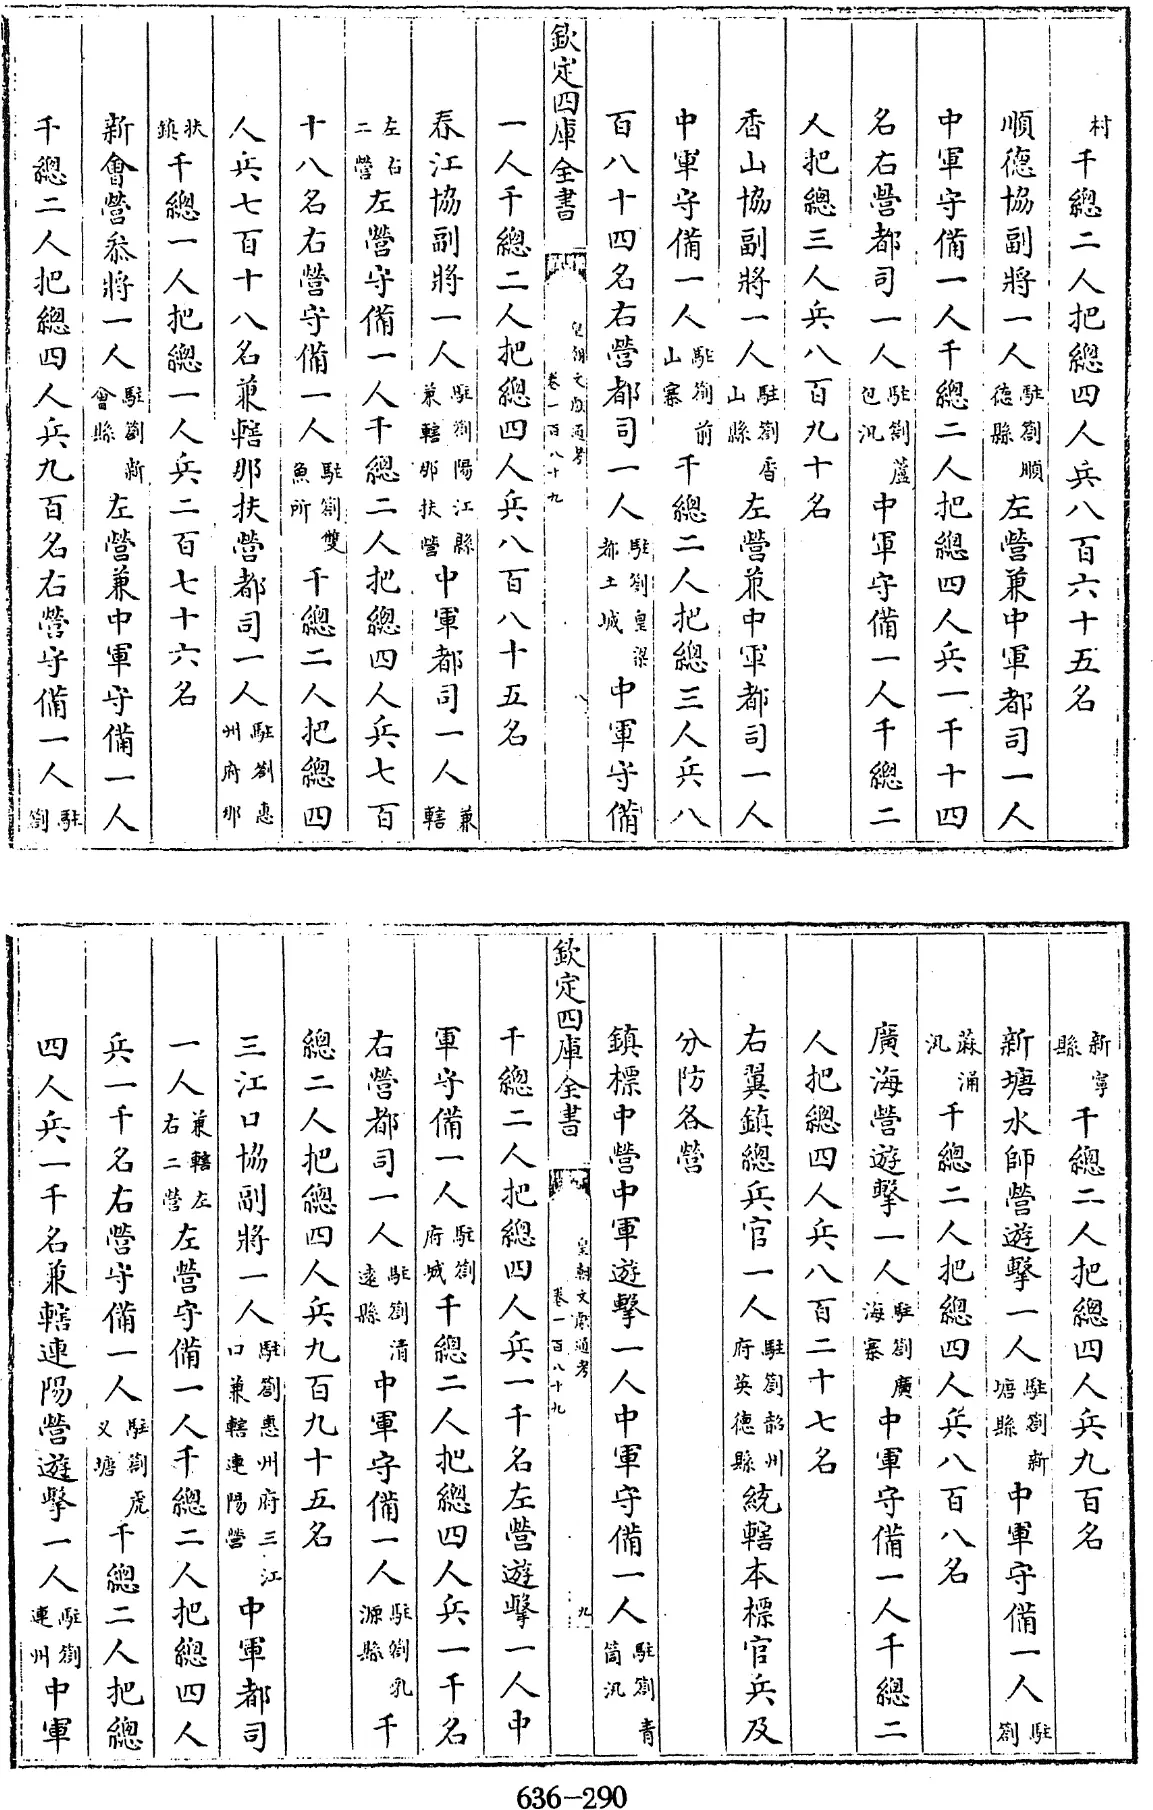 村千總二人把總四人兵八百六十五名
順德協副將一人駐劄順德縣左營兼中軍都司一人
中軍守備一人千總二人把總四人兵一千十四
名右營都司一人駐劄蘆包汛中軍守備一人千總二
人把總三人兵八百九十名
香山協副將一人駐劄香山縣左營兼中軍都司一人
中軍守備一人駐劄前山寨千總二人把總三人兵八
百八十四名右營都司一人駐劄皇梁都土城中軍守備
欽定四庫全書 皇朝文獻通考 卷一百八十九 八
一人千總二人把總四人兵八百八十五名
春江協副將一人駐劄陽江縣兼轄那扶營中軍都司一人兼轄
左右二營左營守備一人千總二人把總四人兵七百
十八名右營守備一人駐劄雙魚所千總二人把總四
人兵七百十八名兼轄那扶營都司一人駐劄惠州府那
扶鎮千總一人把總一人兵二百七十六名
新會營叅將一人駐劄新會縣左營兼中軍守備一人
千總二人把總四人兵九百名右營守備一人駐劄
新寧縣千總二人把總四人兵九百名
新塘水師營遊擊一人駐劄新塘縣中軍守備一人駐劄
蔴涌汛千總二人把總四人兵八百八名
廣海營遊擊一人駐劄廣海寨中軍守備一人千總二
人把總四人兵八百二十七名
右翼鎮總兵官一人駐劄韶州府英德縣統轄本標官兵及
分防各營
鎮標中營中軍遊擊一人中軍守備一人駐劄青筒汛
欽定四庫全書 皇朝文獻通考 卷一百八十九 九
千總二人把總四人兵一千名左營遊擊一人中
軍守備一人駐劄府城千總二人把總四人兵一千名
右營都司一人駐劄清遠縣中軍守備一人駐劄乳源縣千
總二人把總四人兵九百九十五名
三江口協副將一人駐劄惠州府三江口兼轄連陽營中軍都司
一人兼轄左右二營左營守備一人千總二人把總四人
兵一千名右營守備一人駐劄虎叉塘千總二人把總
四人兵一千名兼轄連陽營遊擊一人駐劄連州中軍
636-290